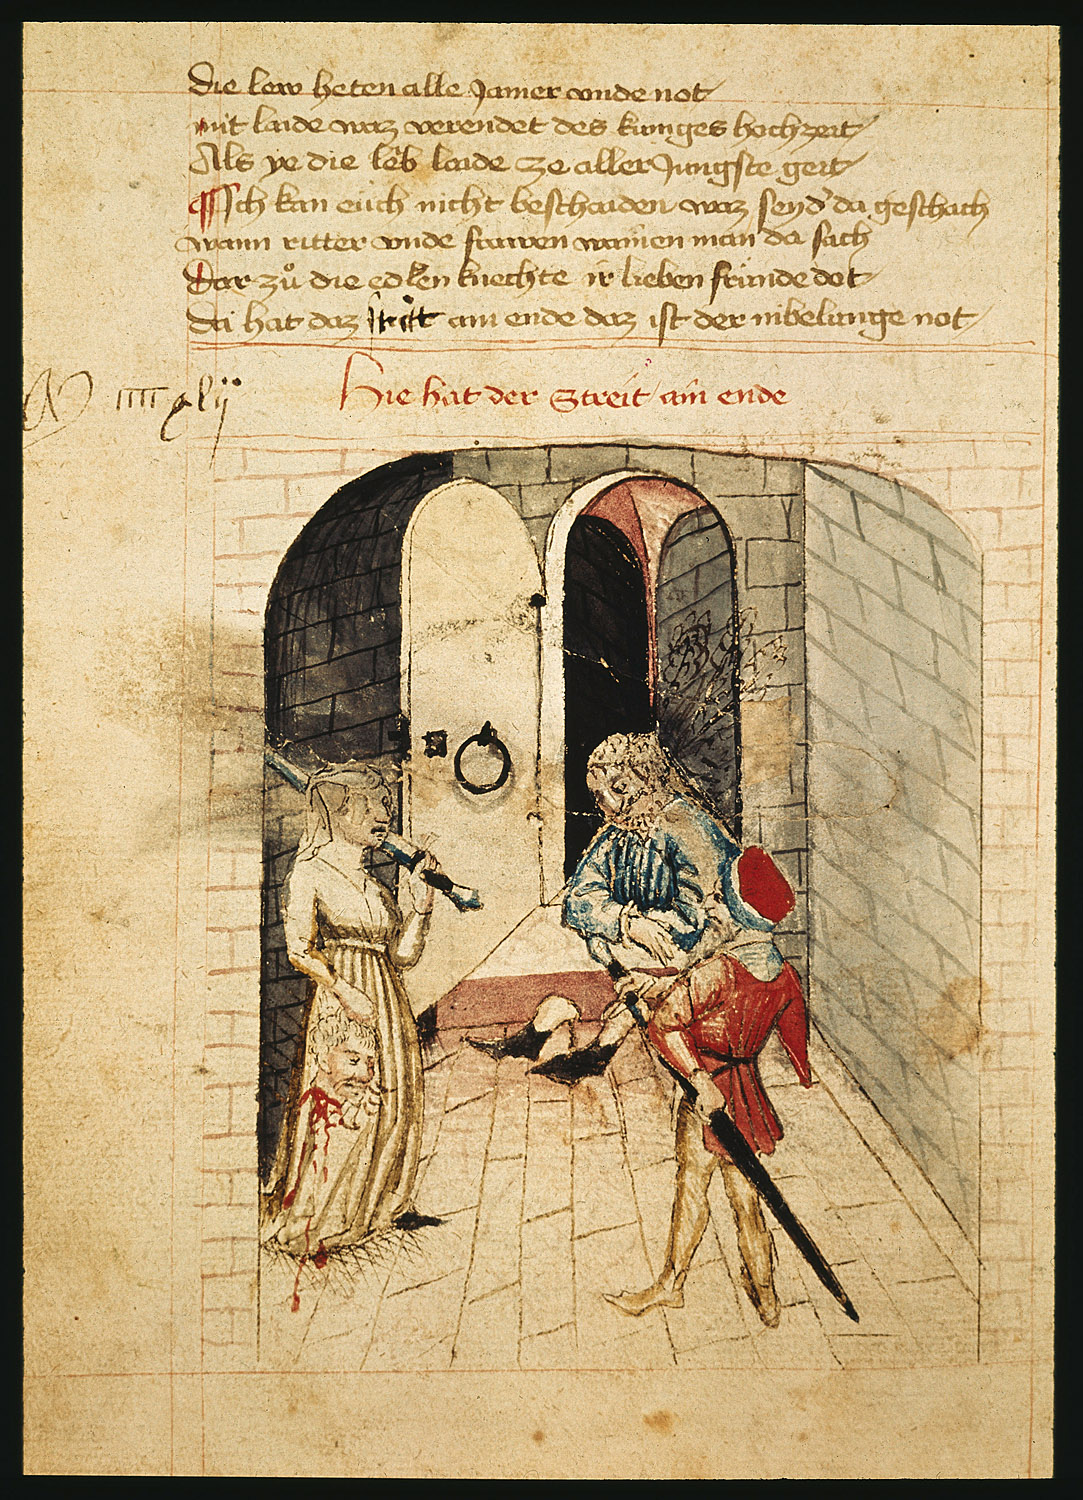 Die lew heten alle Jamer vnde not
mit laide waz verendet des kuniges hochzeit
Als ye die leb laide ze aller Jungste geit
Ich kan euch nicht beschaiden waz seyd da geschach
wann ritter vnde frawen wainen man da sach
Dar zů die edlen knechte ir lieben frunde dot
Da hat daz streit am ende daz ist der nibelunge not
Hie hat der Streit ain ende
xlij